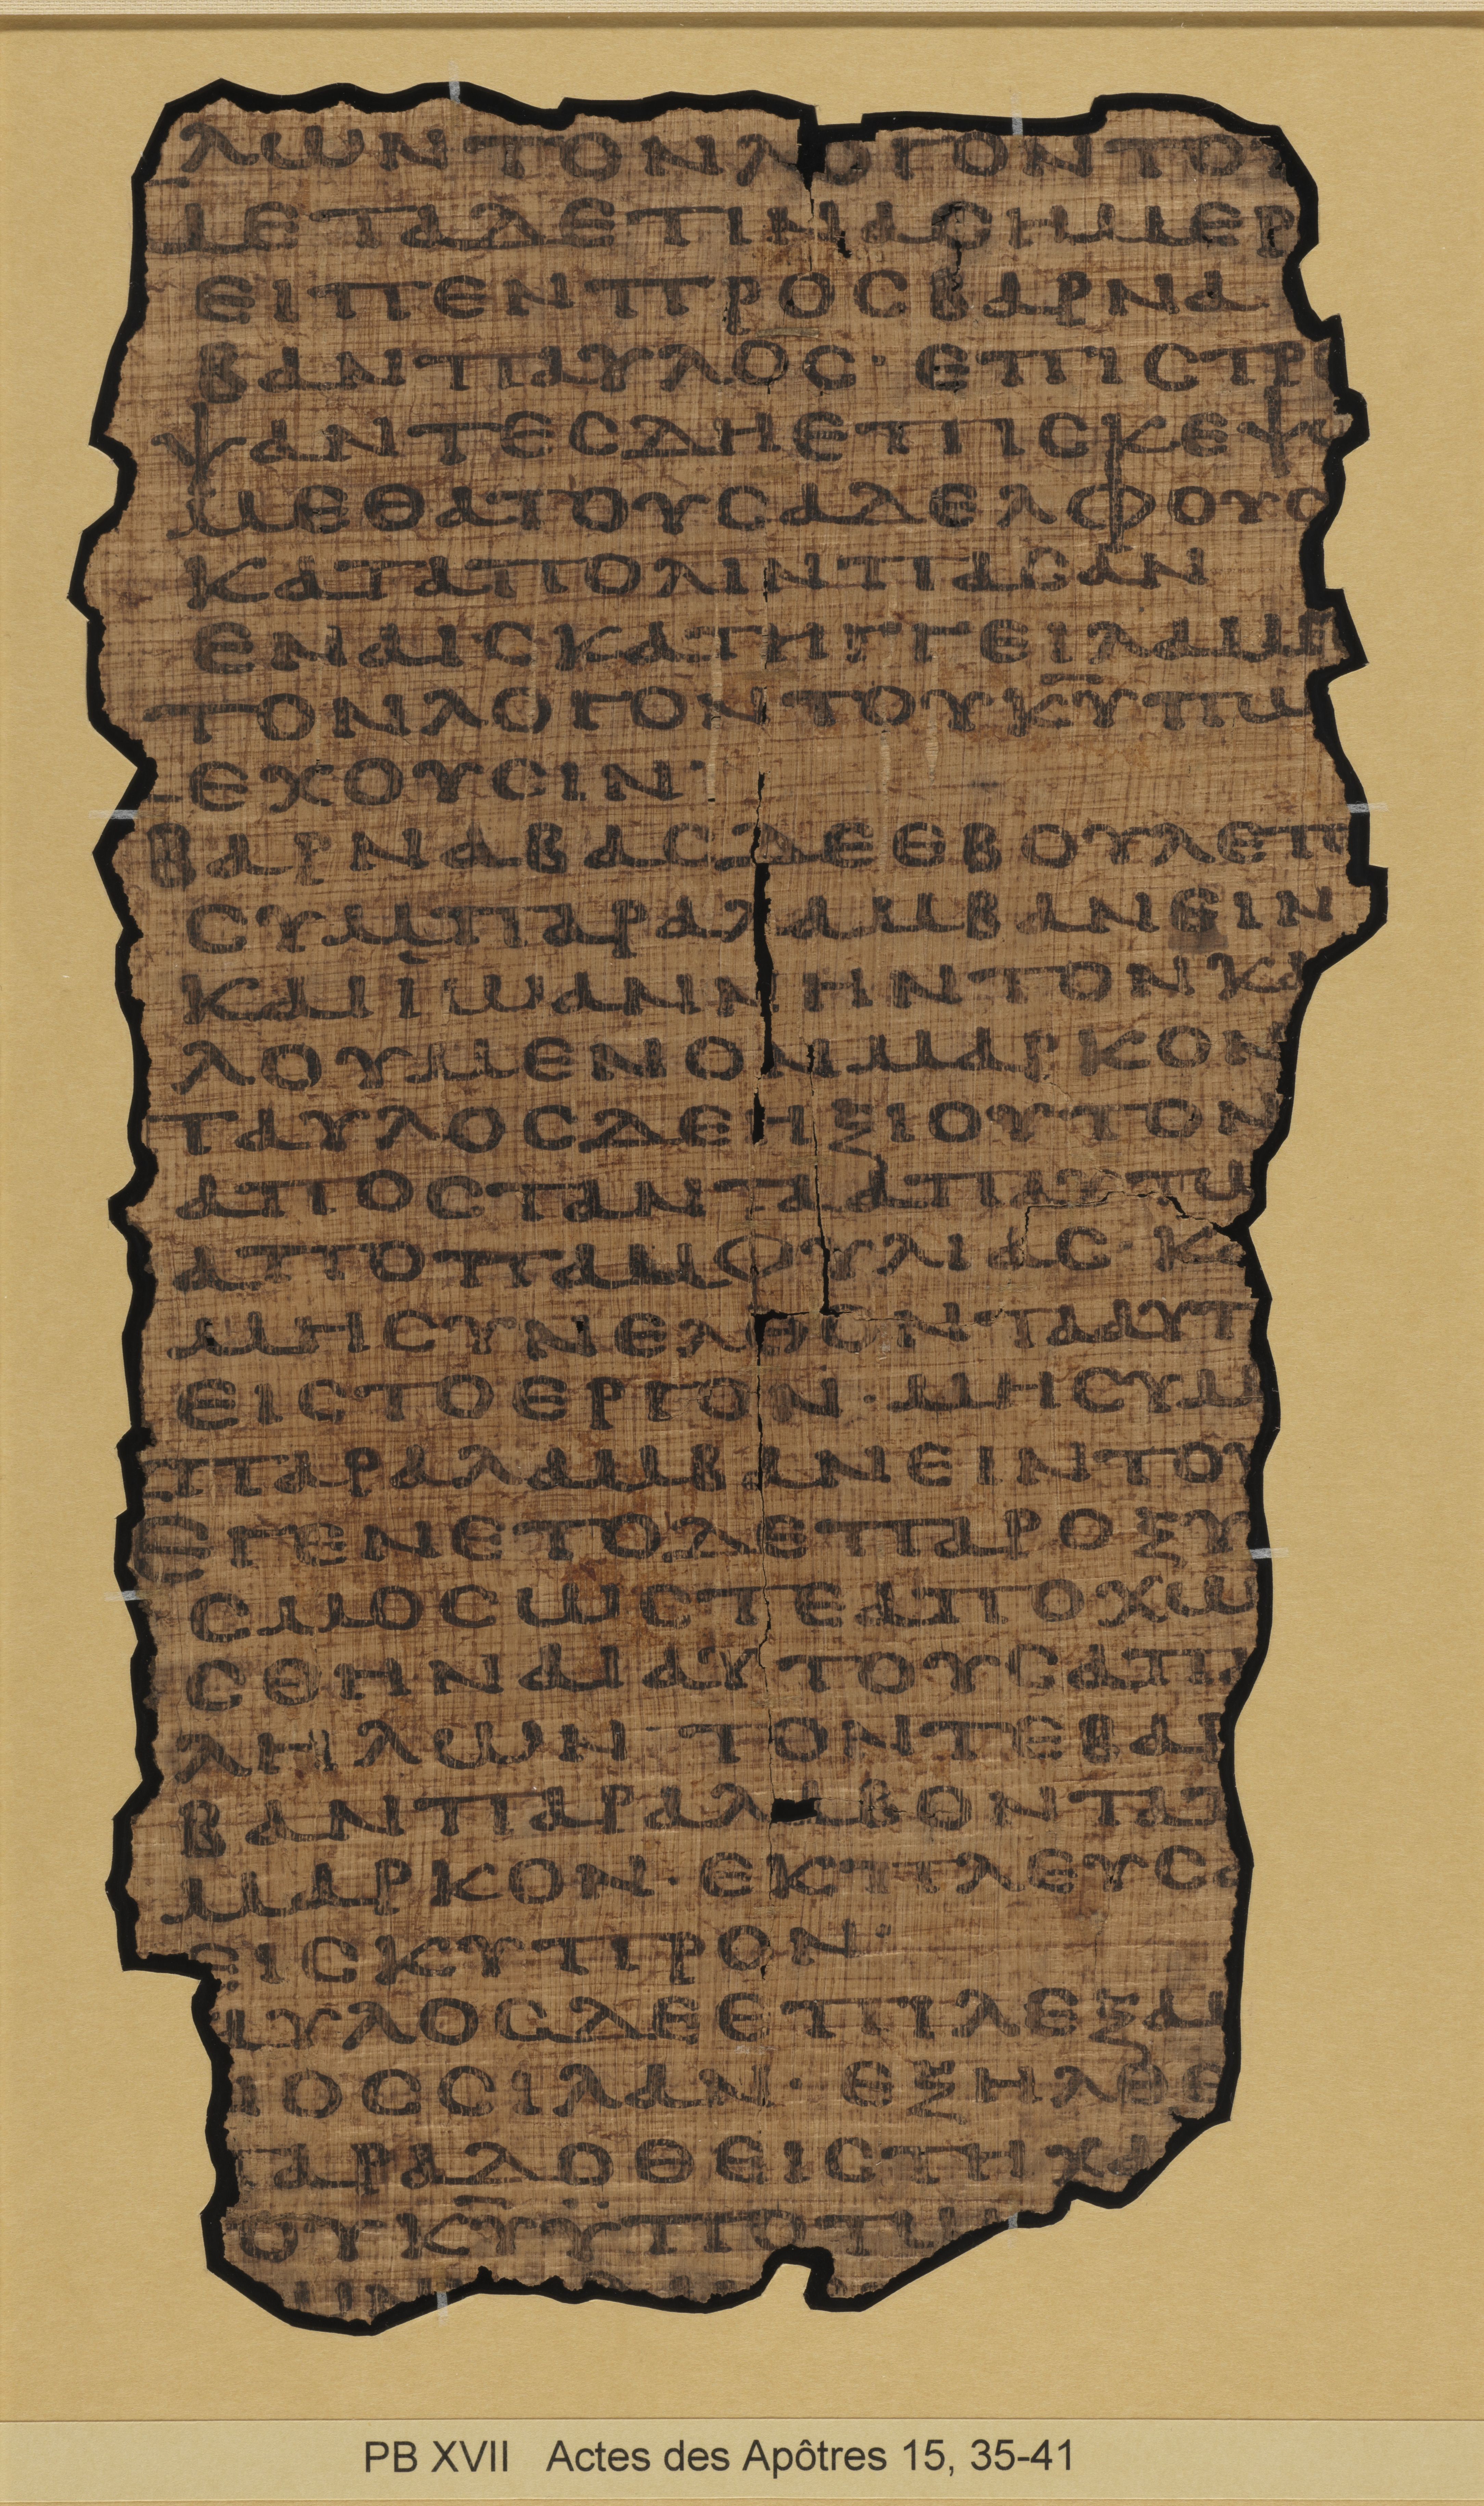 ΛΩΝΤΟΝΛΟΓΟΝΤΟΥ
ΜΕΤΑΔΕΤΙΝΑСΗΜΕΡ
ΕΙΠΕΝΠΡΟСΒΑΡΝΑ
ΒΑΝΠΑΥΛΟС· ΕΠΙСΤΡ
ΨΑΝΤΕСΔΗΕΠΙСΚΕΨ
ΜΕΘΑΤΟΥСΑΔΕΛΦΟΥС
ΚΑΤΑΠΟΛΙΝΠΑСΑΝ
ΕΝΑΙСΚΑΤΗΓΓΕΙΛΑΜΕ
ΤΟΝΛΟΓΟΝΤΟΥΚ̅Υ̅ΠΩ
ΕΧΟΥСΙΝ·
ΒΑΡΝΑΒΑСΔΕΕΒΟΥΛΕΤ
СΥΜΠΑΡΑΛΑΜΒΑΝΕΙΝ
ΚΑΙΪΩΑΝΝΗΝΤΟΝΚΑ
ΛΟΥΜΕΝΟΝΜΑΡΚΟΝ
ΠΑΥΛΟСΔΕΗΞΙΟΥΤΟΝ
ΑΠΟСΤΑΝΤΑΑΠΑΥΤΩ
ΑΠΟΠΑΜΦΥΛΙΑС· ΚΑ
ΜΗСΥΝΕΛΘΟΝΤΑΑΥΤ
ΕΙСΤΟΕΡΓΟΝ· ΜΗСΥΜ
ΠΑΡΑΛΑΜΒΑΝΕΙΝΤΟΥ
ΕΓΕΝΕΤΟΔΕΠΑΡΟΞΥ
СΜΟСΩСΤΕΑΠΟΧΩ
СΘΗΝΑΙΑΥΤΟΥСΑΠΑ
ΛΗΛΩΝ· ΤΟΝΤΕΒΑΡ
ΒΑΝΠΑΡΑΛΑΒΟΝΤΑ
ΜΑΡΚΟΝ· ΕΚΠΛΕΥСΑ
ΕΙСΚΥΠΡΟΝ·
ΑΥΛΟСΔΕΕΠΙΛΕΞΑΜ
ΝΟССΙΛΑΝ· ΕΞΗΛΘΕ
ΠΑΡΑΔΟΘΕΙСΤΗΧΑ
ΟΥΚ̅Υ̅ΫΠΟΤΩ
PB XVII Actes des Apôtres 15, 35-41